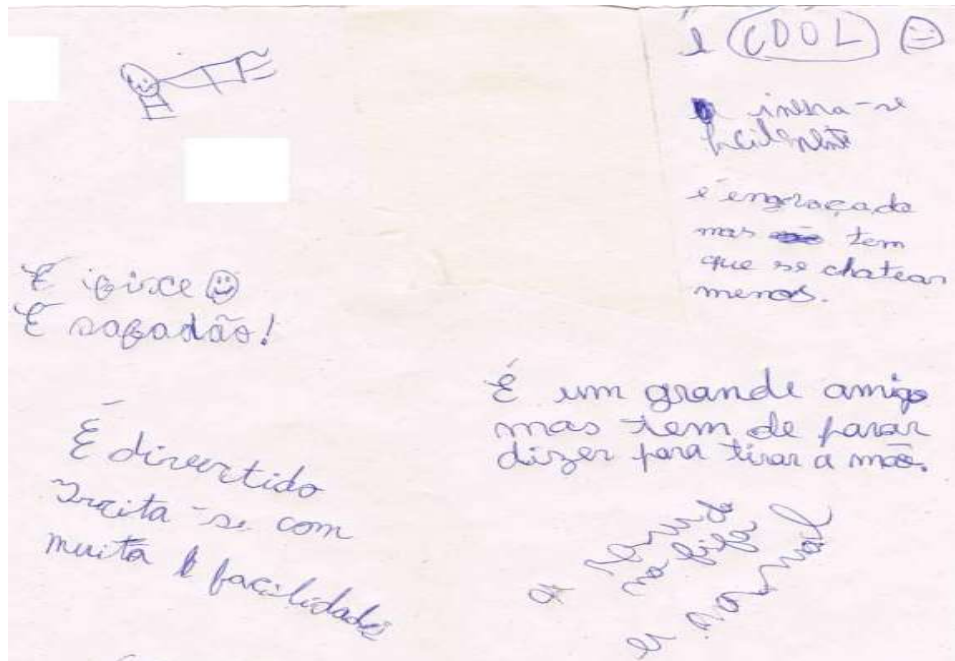 É COOL
irrita-se
facilmente
é engraçado
mas tem
que se chatear
menos.
É fixe
É safadão!
É um grande amigo
mas tem de parar
dizer para tirar a mão.
É divertido
Irrita-se com
muita facilidade